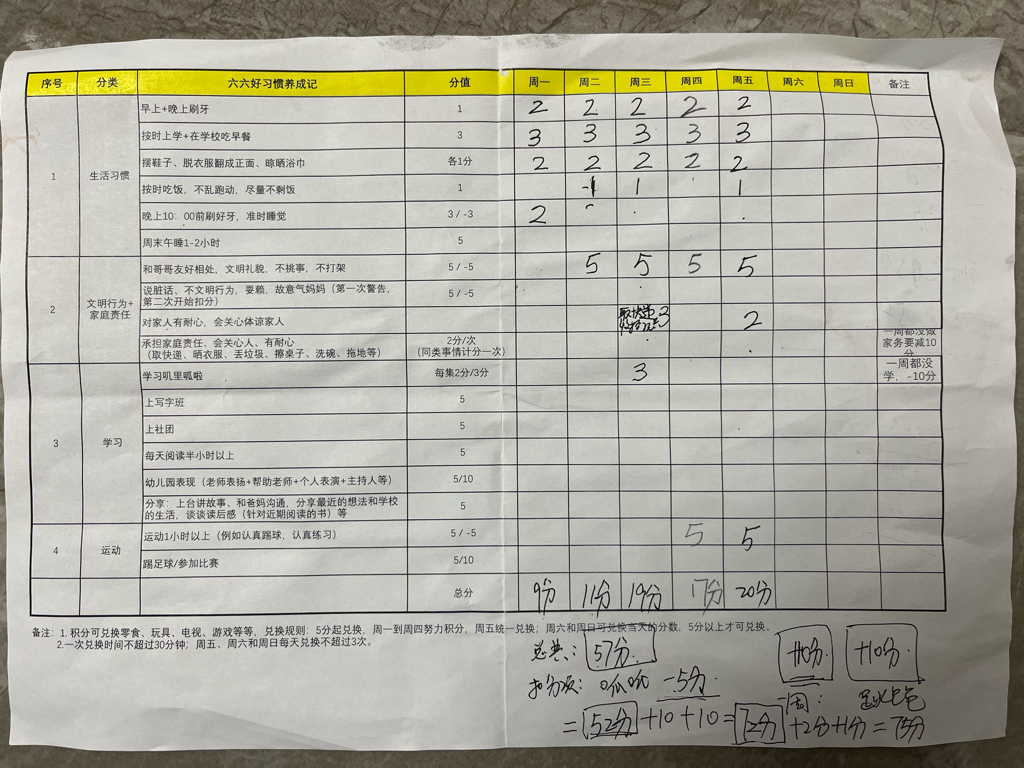 序号 分类 六六好习惯养成记 分值 周一 周二 周三 周四 周五 周六 周日 备注
1 生活习惯
早上+晚上刷牙 1 2 2 2 2 2
按时上学+在学校吃早餐 3 3 3 3 3 3
摆鞋子、脱衣服翻成正面、晾晒浴巾 各1分 2 2 2 2 2
按时吃饭，不乱跑动，尽量不剩饭 1 -1 1 1
晚上10：00前刷好牙，准时睡觉 3 / -3 2
周末午睡1-2小时 5
2 文明行为+
家庭责任
和哥哥友好相处，文明礼貌，不挑事，不打架 5 / -5 5 5 5 5
说脏话、不文明行为，耍赖，故意气妈妈（第一次警告，
第二次开始扣分） 5 / -5
对家人有耐心，会关心体谅家人 取快递 2 2
承担家庭责任、会关心人、有耐心
（取快递、晒衣服、丢垃圾、擦桌子、洗碗、拖地等） 2分/次
（同类事情计分一次） 一周都没做
家务要减10
分
3 学习
学习叽里呱啦 每集2分/3分 3 一周都没
学，-10分
上写字班 5
上社团 5
每天阅读半小时以上 5
幼儿园表现（老师表扬+帮助老师+个人表演+主持人等） 5/10
分享：上台讲故事、和爸妈沟通，分享最近的想法和学校
的生活，谈谈读后感（针对近期阅读的书）等 5
4 运动
运动1小时以上（例如认真踢球，认真练习） 5 / -5 5 5
踢足球/参加比赛 5/10
总分 9分 11分 19分 17分 20分
备注：1. 积分可兑换零食、玩具、电视、游戏等等，兑换规则：5分起兑换，周一到周四努力积分，周五统一兑换；周六和周日可兑换当天的分数，5分以上才可兑换。
2.一次兑换时间不超过30分钟；周五、周六和周日每天兑换不超过3次。
总共： 57分. +10分. +10分.
扣分项： 叽呱 -5分. 一周：
= 52分 +10 +10 = 72分 +2分 +1分 = 75分